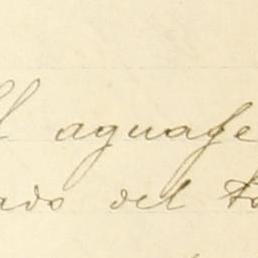 El aguafe
ado del to